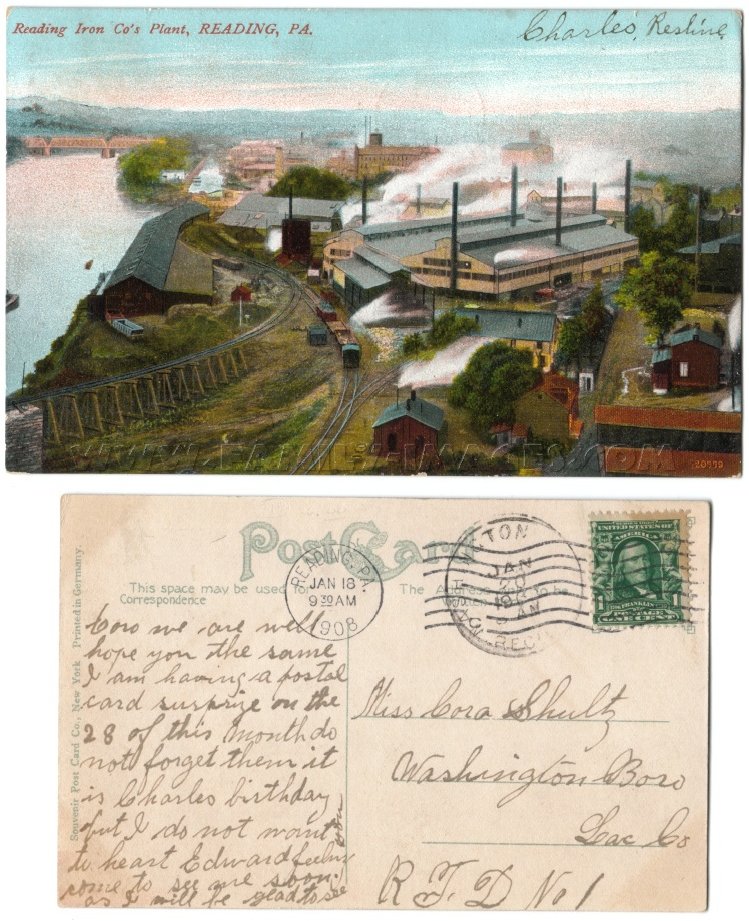 Reading Iron Co's Plant, READING, PA.
Charles, Resline
WWW.FAMILY-IMAGES.COM
20559
Post Card
This space may be used for
Correspondence
The Address
to be
READING, PA.
JAN 18
9 30 AM
1908
TON
JAN
20
AM
REC'D
SERIES 1902
UNITED STATES OF
AMERICA
FRANKLIN
POSTAGE
1 ONE CENT 1
Souvenir Post Card Co., New York Printed in Germany.
Cora we are well
hope you the same
I am having a postal
card surprize on the
28 of this month do
not forget them it
is Charles birthday
but I do not want
to heart Edward feeling
come to see me soon
as I will be glad to see
you
Miss Cora Shultz
Washington Boro
Lac Co
R. F. D No 1